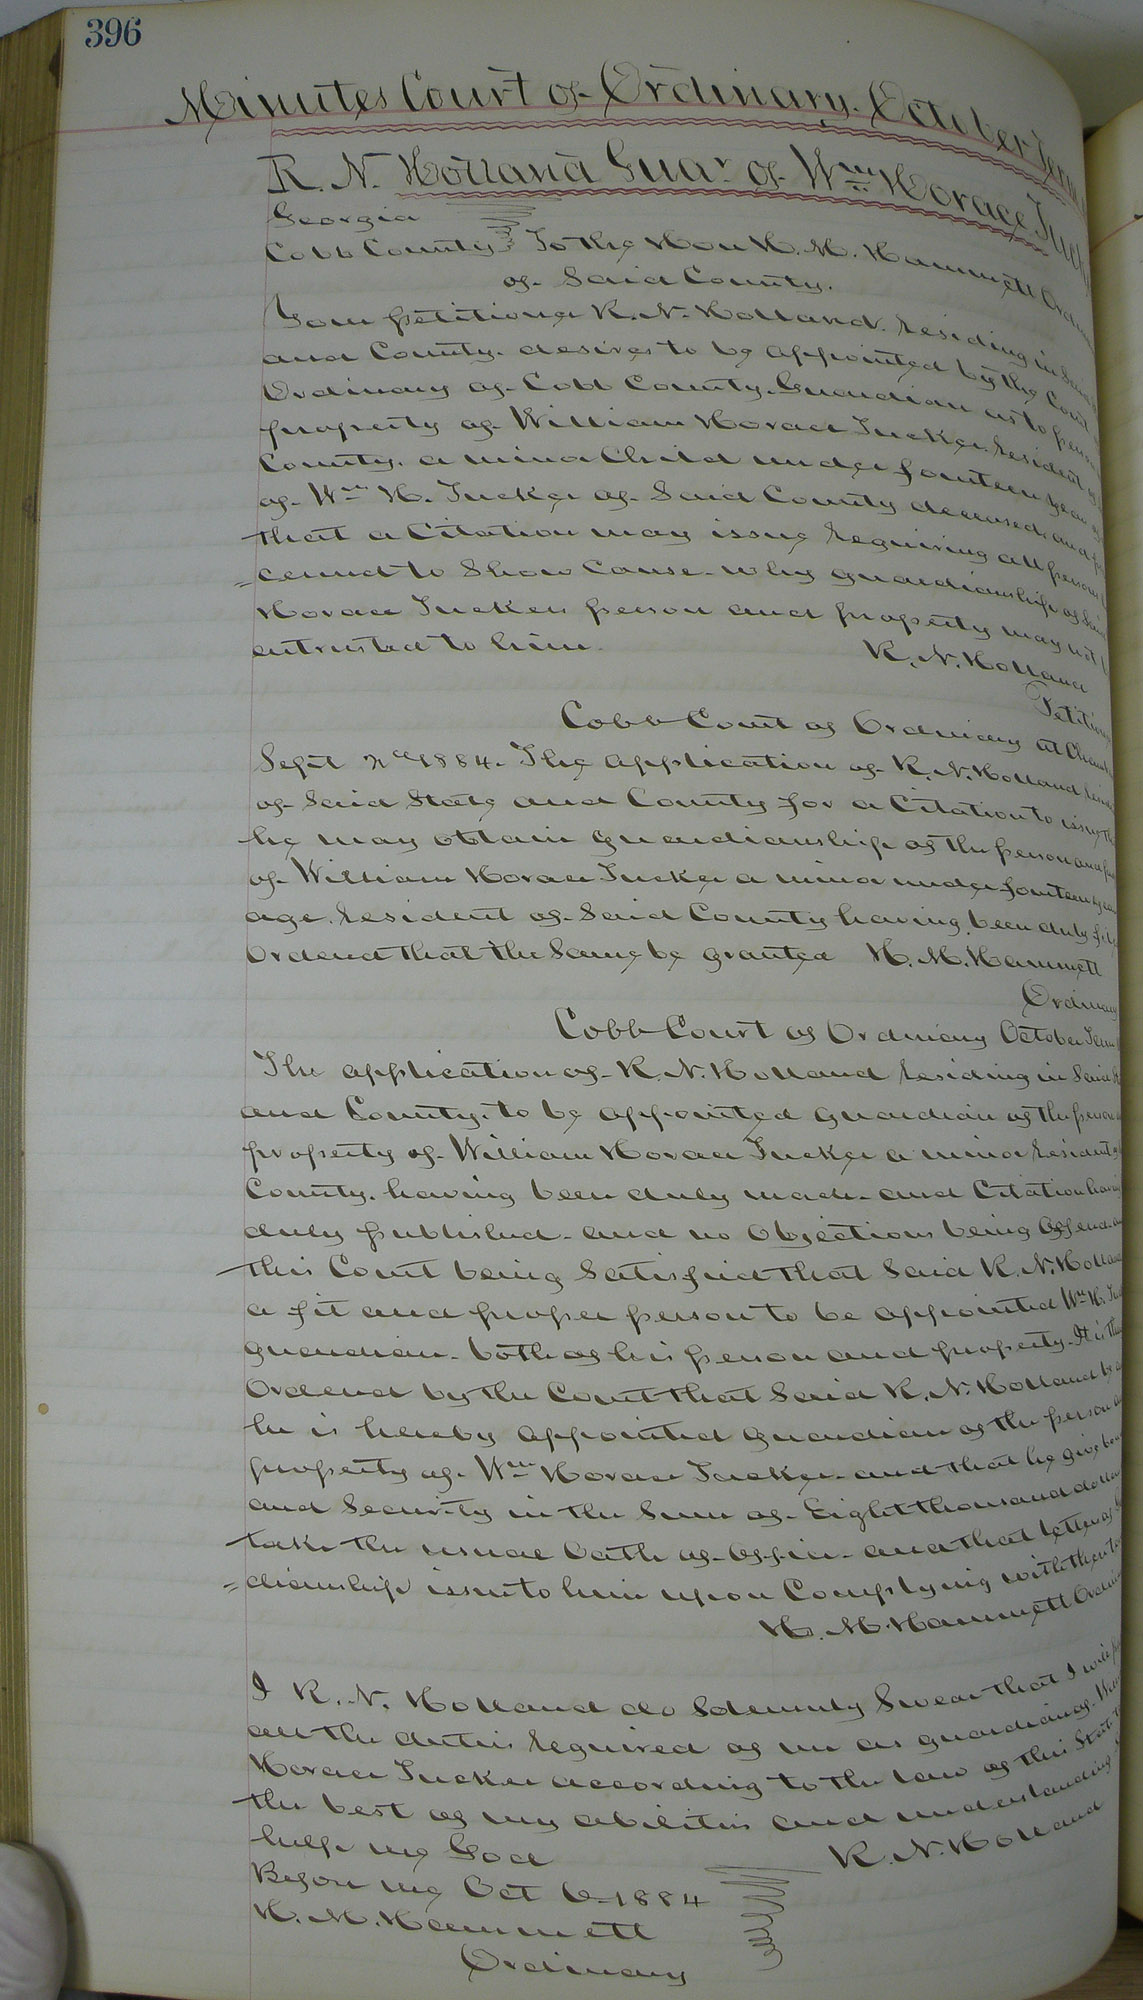 396
Minutes Court of Ordinary. October Term
R. N. Holland Guar. of Wm Horace Tuck
Georgia
Cobb County To the Hon H. M. Hammett Ordin
of Said County.
Your petitioner R. N. Holland. residing in Said
and County. desires to be appointed by the Court
Ordinary of Cobb County. Guardian as to person
property of William Horace Tucker. resident of
County. a minor Child under fourteen years
of Wm H. Tucker of Said County deceased, and
that a Citation may issue requiring all persons
=cerned to Show Cause why guardianship of Said
Horace Tuckers person and property may not
entrusted to him.
R. N. Holland
Petition
Cobb Court of Ordinary at Cham
Sept 2nd 1884. The application of R. N. Holland
of Said State and County for a Citation to issue
he may obtain guardianship of the person and
of William Horace Tucker a minor under fourteen years
age. resident of Said County having been duly
Ordered that the Same be granted H. M. Hammett
Ordinary
Cobb Court of Ordinary October Term
The application of R. N. Holland residing in Said
and County. to be appointed guardian of the person
property of William Horace Tucker a minor resident
County. having been duly made and Citation having
duly published and no Objections being offered
this Court being Satisfied that Said R. N. Holland
a fit and proper person to be appointed Wm H. Tu
guardian both of his person and property. It is
Ordered by the Court that Said R. N. Holland be
he is hereby appointed guardian of the person
property of Wm Horace Tucker and that he give
and Security in the Sum of Eight thousand dollars
take the usual Oath of office and that letters of
=dianship issue to him upon Complying with the
H. M. Hammett Ordin
I R. N. Holland do Solemnly Swear that I will
all the duties required of me as guardian of
Horace Tucker according to the law of this State
the best of my abilities and understanding
help me God R. N. Holland
Before me Oct 6 1884
H. M. Hammett
Ordinary